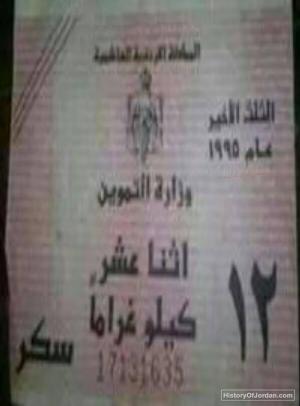 المملكة الاردنية الهاشمية
الثلث الأخير
عام ١٩٩٥
وزارة التموين
اثنا عشر
كيلو غراما
١٢
سكر
17131635
HistoryOfJordan.com